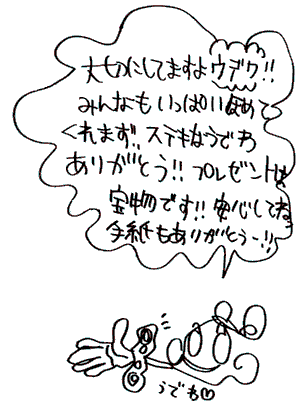 大切にしてますよウデワ!!
みんなもいっぱいほめて
くれます!! ステキなうでわ
ありがとう!! プレゼントは
宝物です!! 安心してねっ
手紙もありがとう〜!!
うでも♡